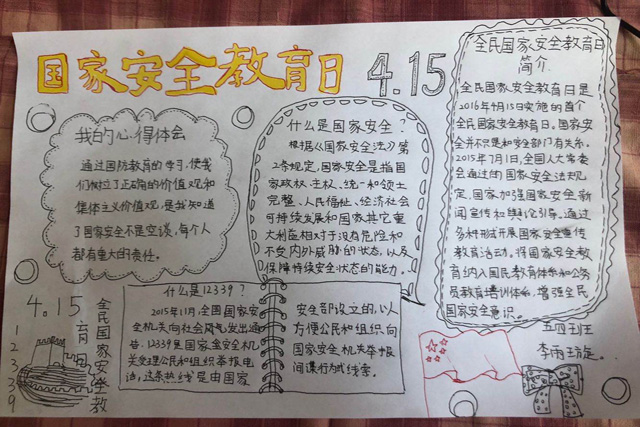 国家安全教育日 4.15
我的心得体会
通过国防教育的学习,使我
们树立了正确的价值观和
集体主义价值观,是我知道
了国家安全不是空谈,每个人
都有重大的责任。
什么是国家安全?
根据《国家安全法》第
2条规定,国家安全是指国
家政权、主权、统一和领土
完整、人民福祉、经济社会
可持续发展和国家其它重
大利益相对于没有危险和
不受内外威胁的状态,以及
保障持续安全状态的能力。
全民国家安全教育日
简介.
全民国家安全教育日是
2016年4月15日实施的首个
全民国家安全教育日。国家安
全并不只是和安全部门有关系。
2015年7月1日,全国人大常委
会通过的国家安全法规
定,国家加强国家安全新
闻宣传和舆论引导,通过
多种形式开展国家安全宣传
教育活动。将国家安全教
育纳入国民教育体系和公务
员教育培训体系,增强全民
国家安全意识。
什么是12339?
2015年11月,全国国家安
全机关向社会
告.12339是国家安全机
关受理公民和组织举报电
话,这条热线是由国家
安全部设立的,以
方便公民和组织向
国家安全机关举报
间谍行为或线索.
4.15
全民国家安全教
育
12339
五四班
李雨璇.